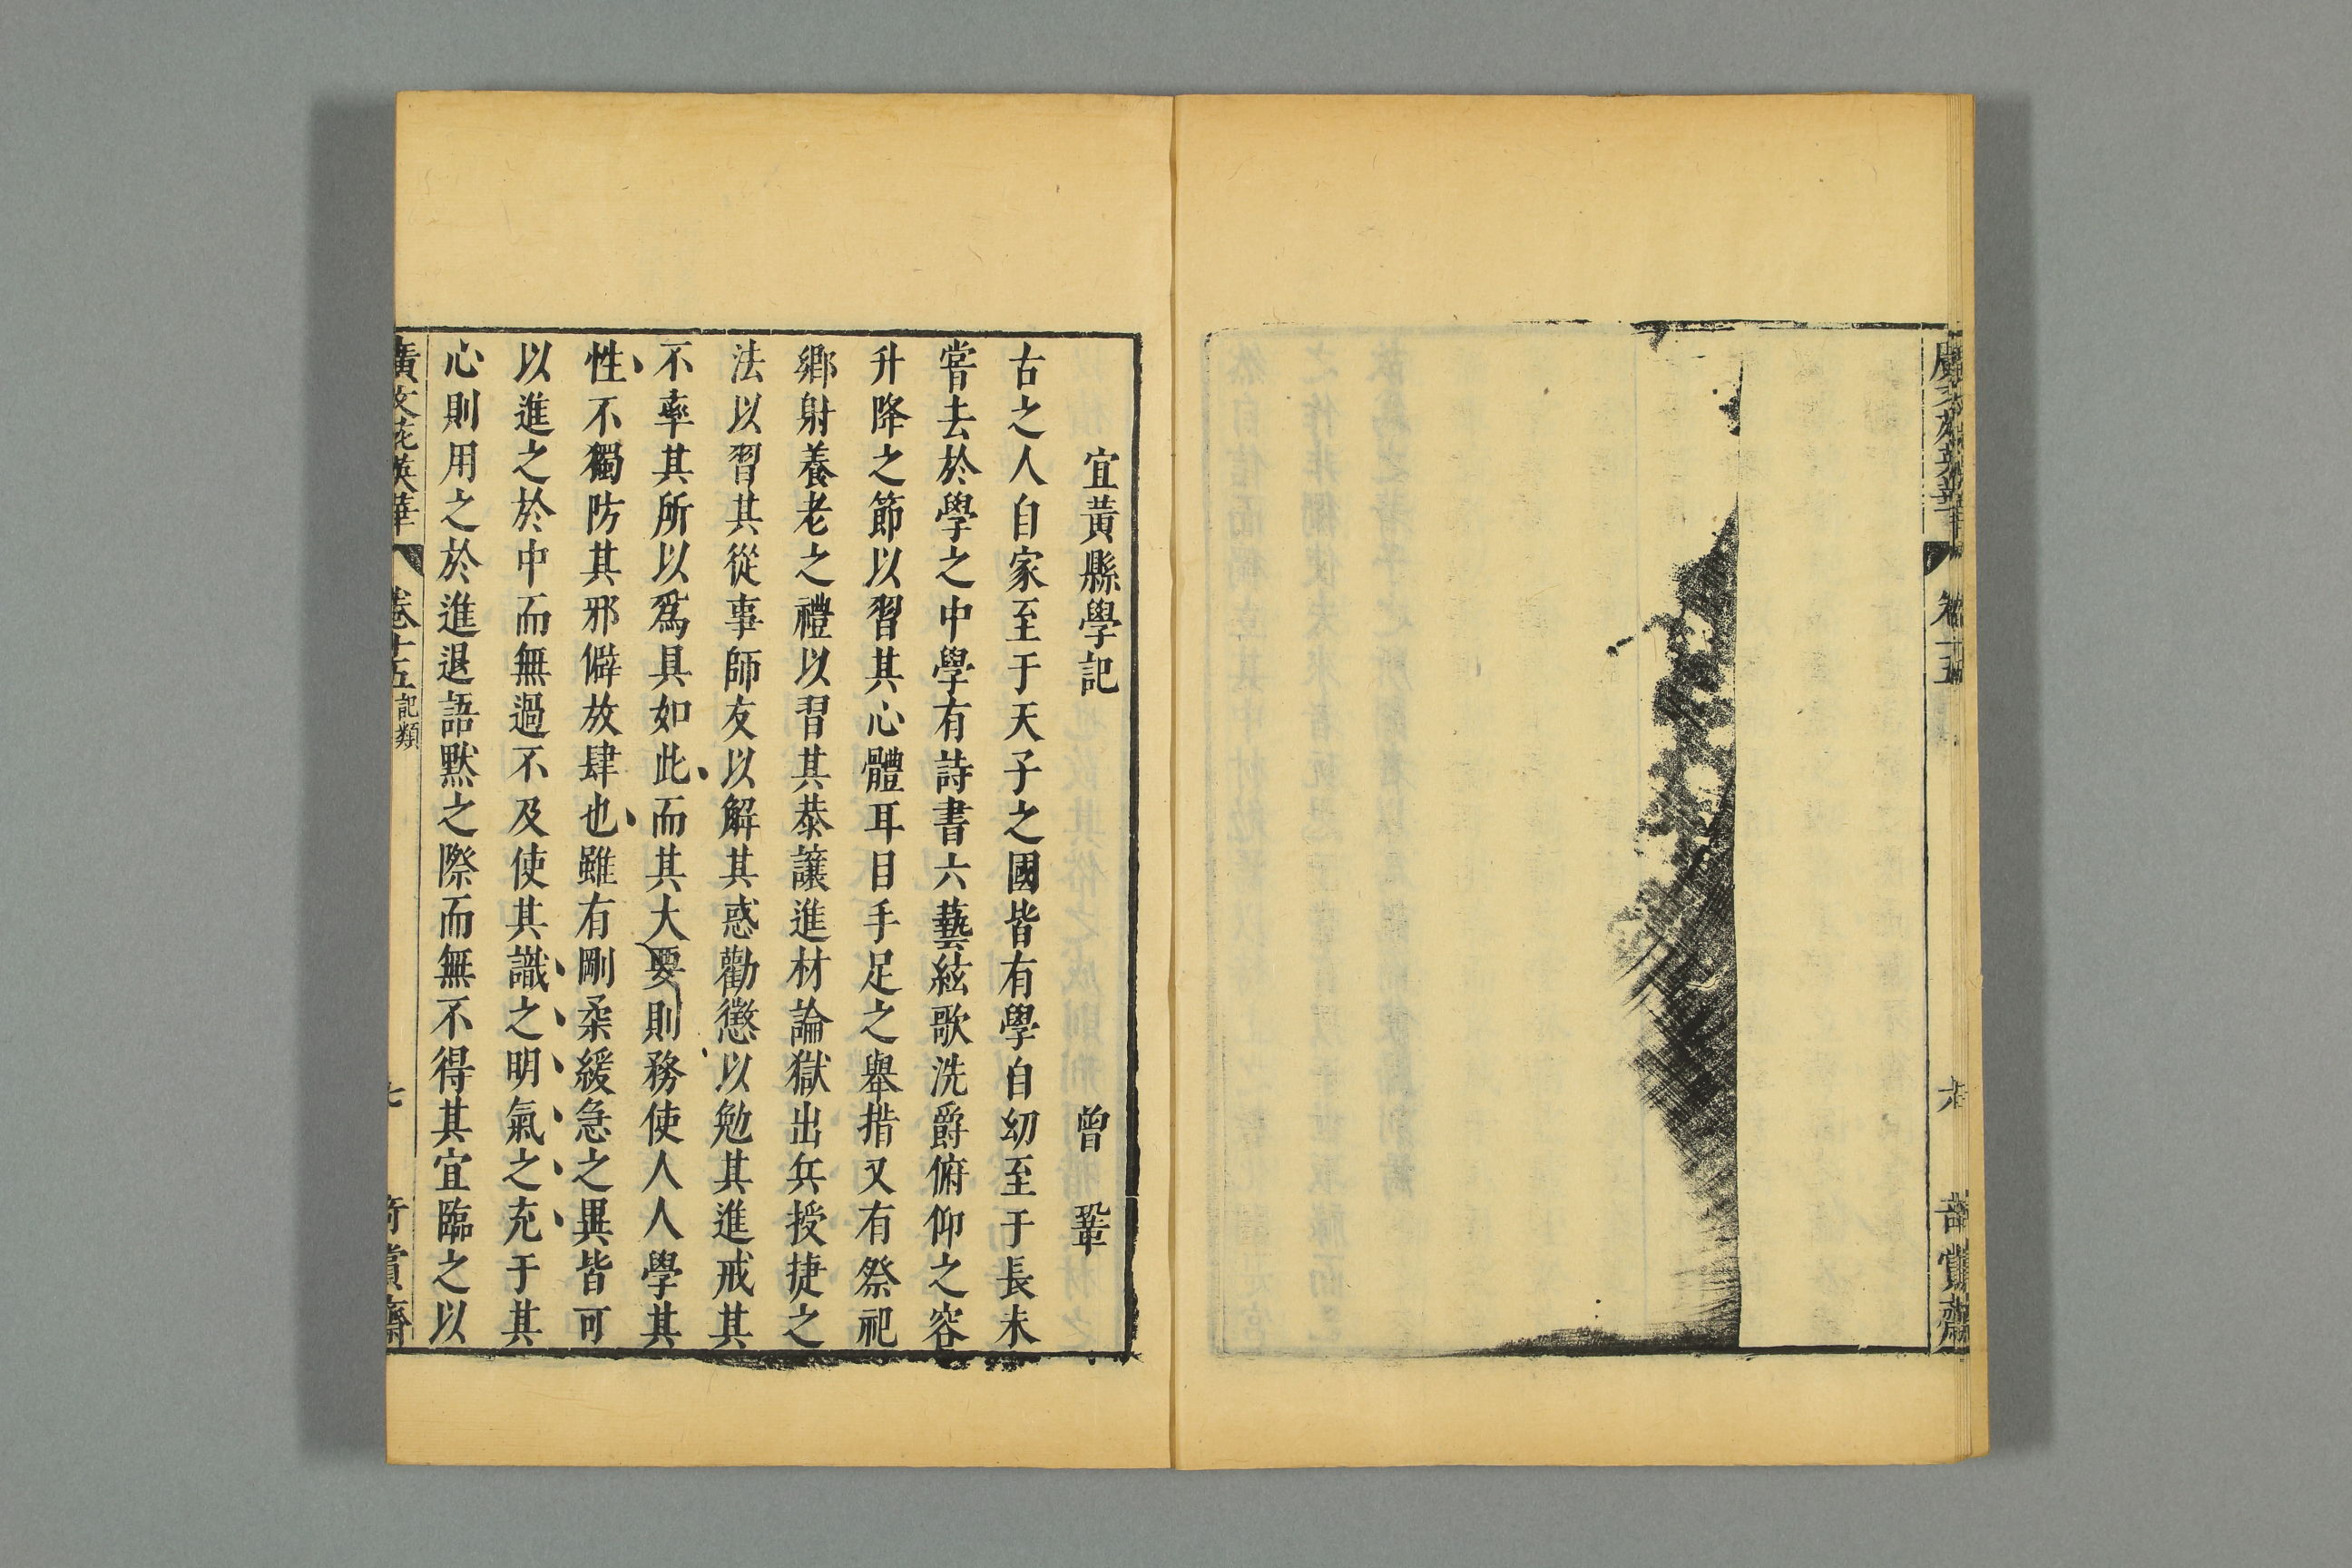 廣文苑英華
卷十五
六
奇賞齋
宜黃縣學記
曾鞏
古之人自家至于天子之國皆有學自幼至于長未
嘗去於學之中學有詩書六藝絃歌洗爵俯仰之容
升降之節以習其心體耳目手足之舉措又有祭祀
鄉射養老之禮以習其恭讓進材論獄出兵授捷之
法以習其從事師友以解其惑勸懲以勉其進戒其
不率其所以爲具如此而其大要則務使人人學其
性不獨防其邪僻放肆也雖有剛柔緩急之異皆可
以進之於中而無過不及使其識之明氣之充于其
心則用之於進退語默之際而無不得其宜臨之以
廣文苑英華
卷十五
記類
七
奇賞齋